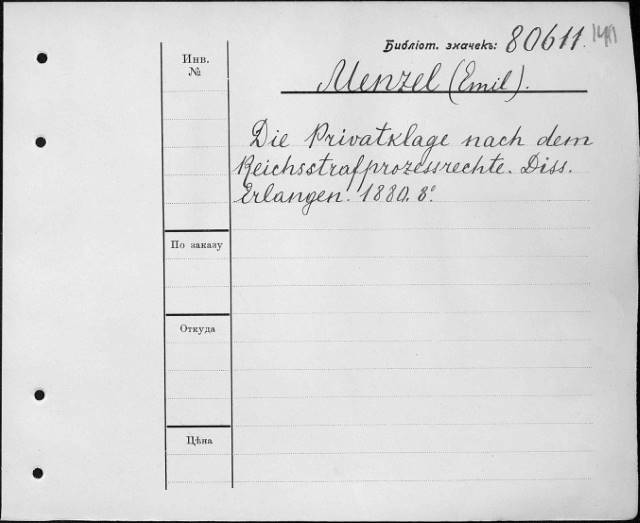 Библіот. значекъ: 80611.
Инв.
№
Menzel (Emil).
Die Privatklage nach dem
Reichsstrafprozessrechte. Diss.
Erlangen. 1880. 8°.
По заказу
Откуда
Цѣна